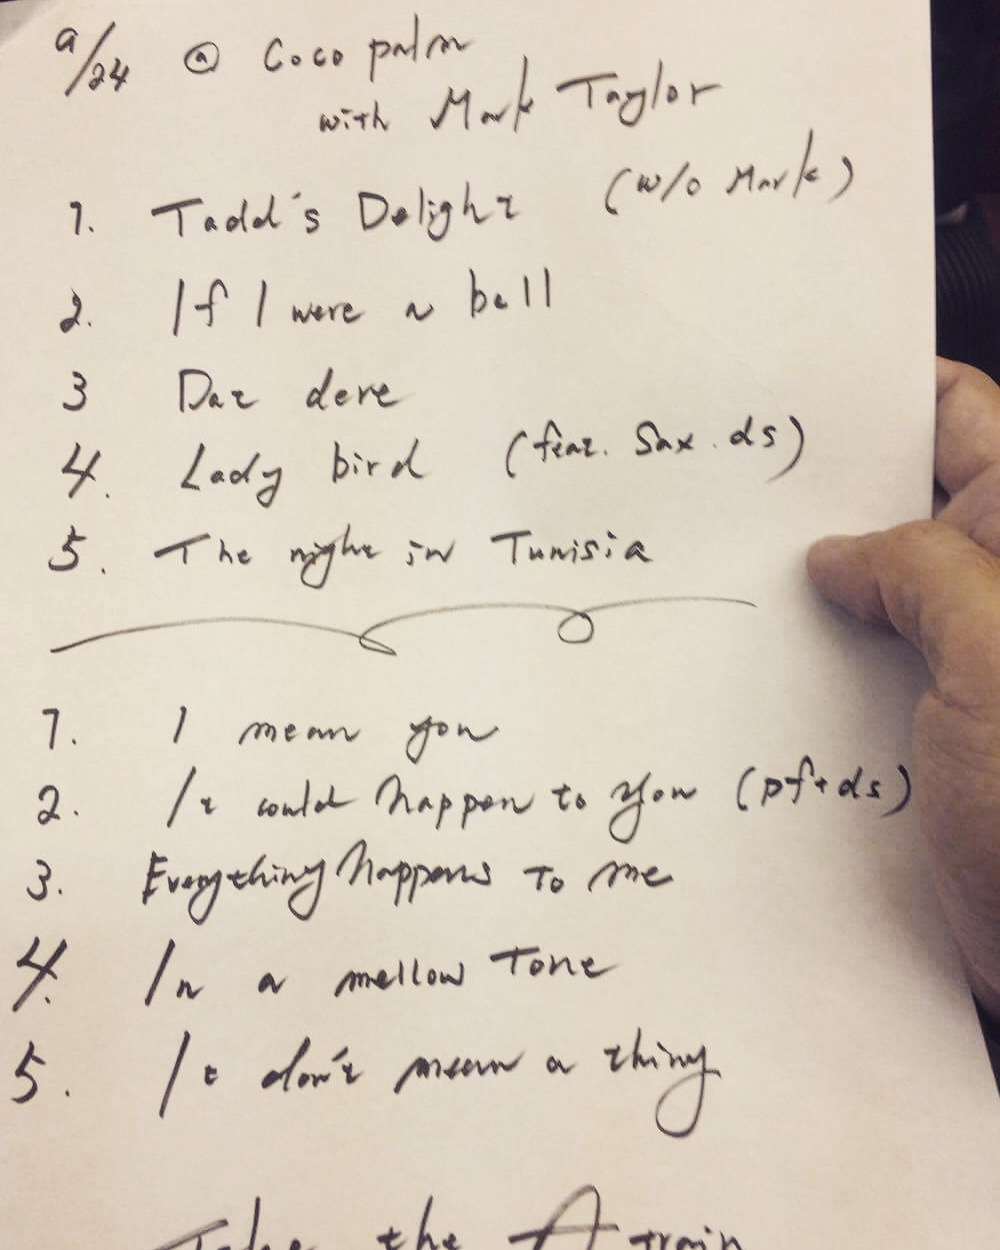 9/24 @ Coco palm
with Mark Taylor
1. Tadd's Delight (w/o Mark)
2. If I were a bell
3 Dat dere
4. Lady bird (feat. Sax. ds)
5. The night in Tunisia
1. I mean you
2. It could happen to you (pf+ds)
3. Everything happens to me
4. In a mellow Tone
5. It don't mean a thing
Take the A train